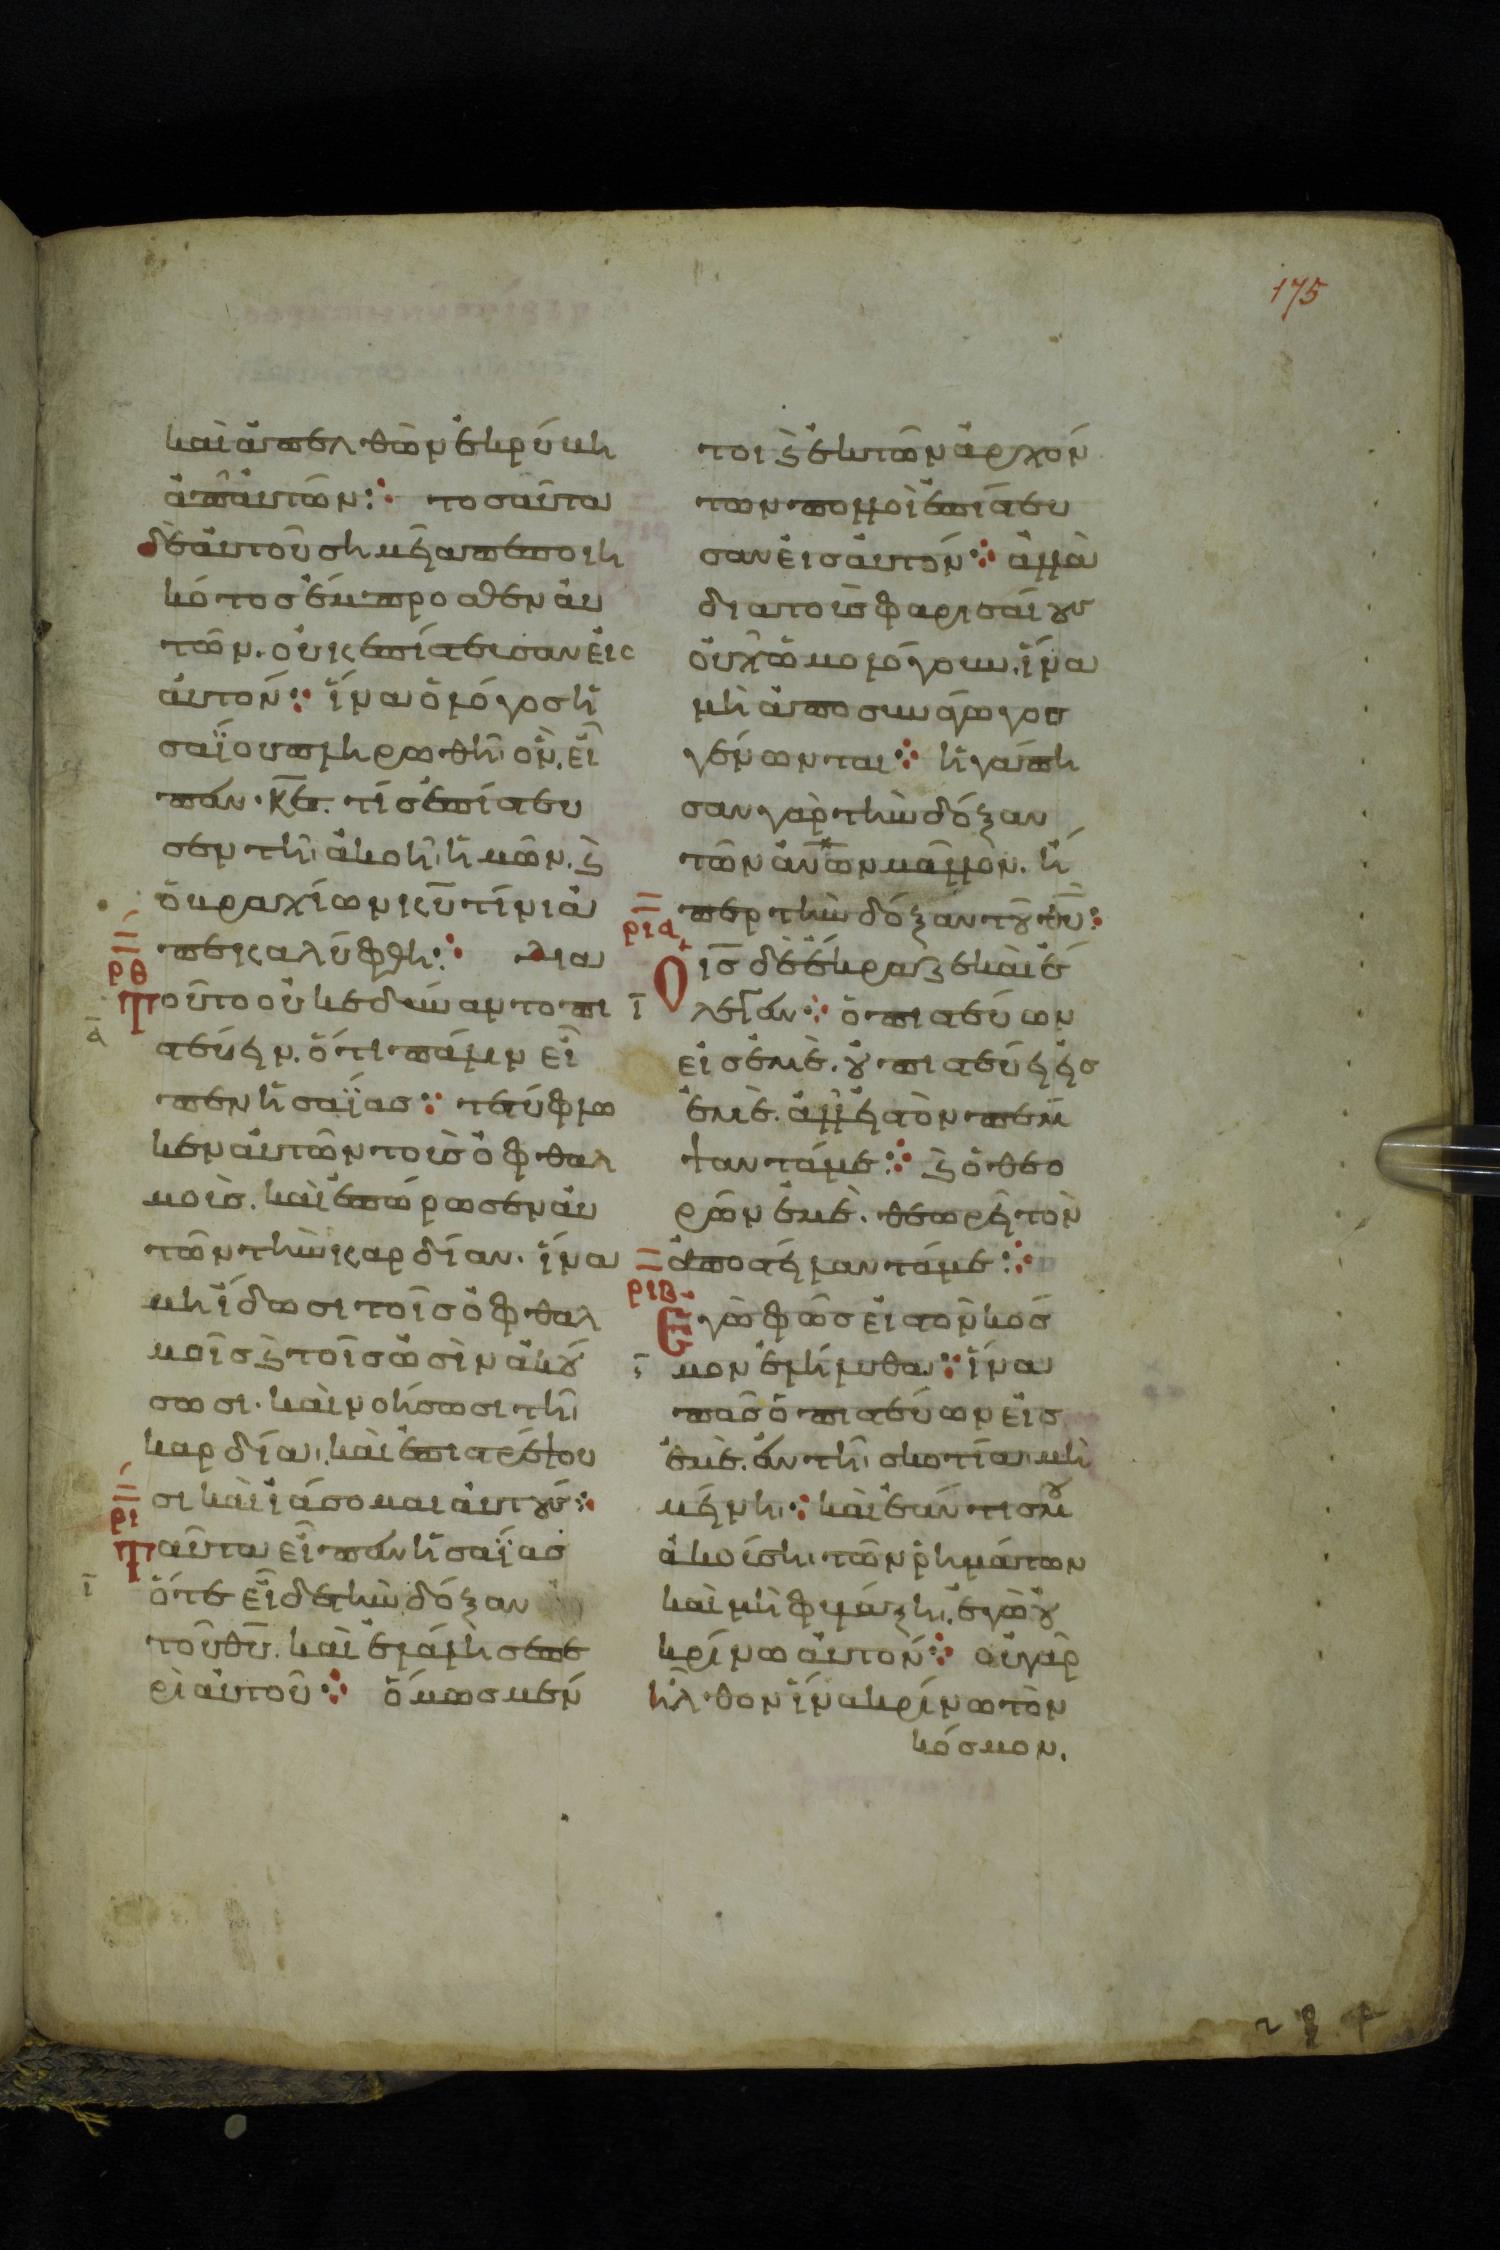 175
καὶ ἀπελθὼν ἐκρύβη
ἀπ' αὐτῶν· τοσαῦτα
δὲ αὐτοῦ σημεῖα πεποιη
κότος ἔμπροσθεν αὐ
τῶν. οὐκ ἐπίστευσαν εἰς
αὐτόν· ἵνα ὁ λόγος ἡ
σαΐου πληρωθῆ ὃν εἶ
πεν. κε. τίς ἐπίστευ
σεν τῆ ἀκοῆ ἡμῶν. ϗ
ὁ βραχίων κυ τίνι ἀ
πεκαλύφθη· Δια
ρθ
τοῦτο οὐκ ἐδύναντο πι
δ
στεύειν. ὅτι πάλιν εἶ
πεν ἡσαΐας· τετύφλω
κεν αὐτῶν τοὺς ὀφθαλ
μούς. καὶ ἐπώρωσεν αὐ
τῶν τὴν καρδίαν. ἵνα
μὴ ἴδωσι τοῖς ὀφθαλ
μοῖς ϗ τοῖς ὠσὶν ἀκού
σωσι. καὶ νοήσωσι τῆ
καρδία. καὶ ἐπιστρέψου
σι καὶ ἰάσομαι αὐτούς·
ρι
Ταῦτα εἶπεν ἡσαΐας
ι
ὅτε εἶδε τὴν δόξαν
τοῦ θυ. καὶ ἐλάλησε πε
ρὶ αὐτοῦ· ὅμως μέν
τοι ϗ ἐκ τῶν ἀρχόν
των πολλοὶ ἐπίστευ
σαν εἰς αὐτόν· ἀλλὰ
δια τοὺς φαρισαίους
οὐχ ὡμολόγουν. ἵνα
μὴ ἀποσυνάγωγοι
γένωνται· ἠγάπη
σαν γὰρ τὴν δόξαν
τῶν ἀνων μᾶλλον. ἤ
περ τὴν δόξαν τοῦ θυ·
ρια
Ὁ ις δὲ ἔκραξε καὶ εἶ
ι
πεν· ὁ πιστεύων
εἰς ἐμὲ. οὐ πιστεύει εἰς
ἐμὲ. ἀλλ' εἰς τὸν πέμ
ψαντά με· ϗ ὁ θεο
ρῶν ἐμὲ. θεωρεῖ τὸν
ἀποστείλαντά με·
ριβ
Ἐγὼ φῶς εἰς τὸν κόσ
ι
μον ἐλήλυθα· ἵνα
πᾶς ὁ πιστεύων εἰς
ἐμὲ. ἐν τῆ σκοτία μὴ
μείνη· καὶ ἐάν τις μου
ἀκούση τῶν ῥημάτων
καὶ μὴ φυλάξη. ἐγὼ οὐ
κρίνω αὐτόν· οὐ γὰρ
ἦλθον ἵνα κρίνω τὸν
κόσμον.